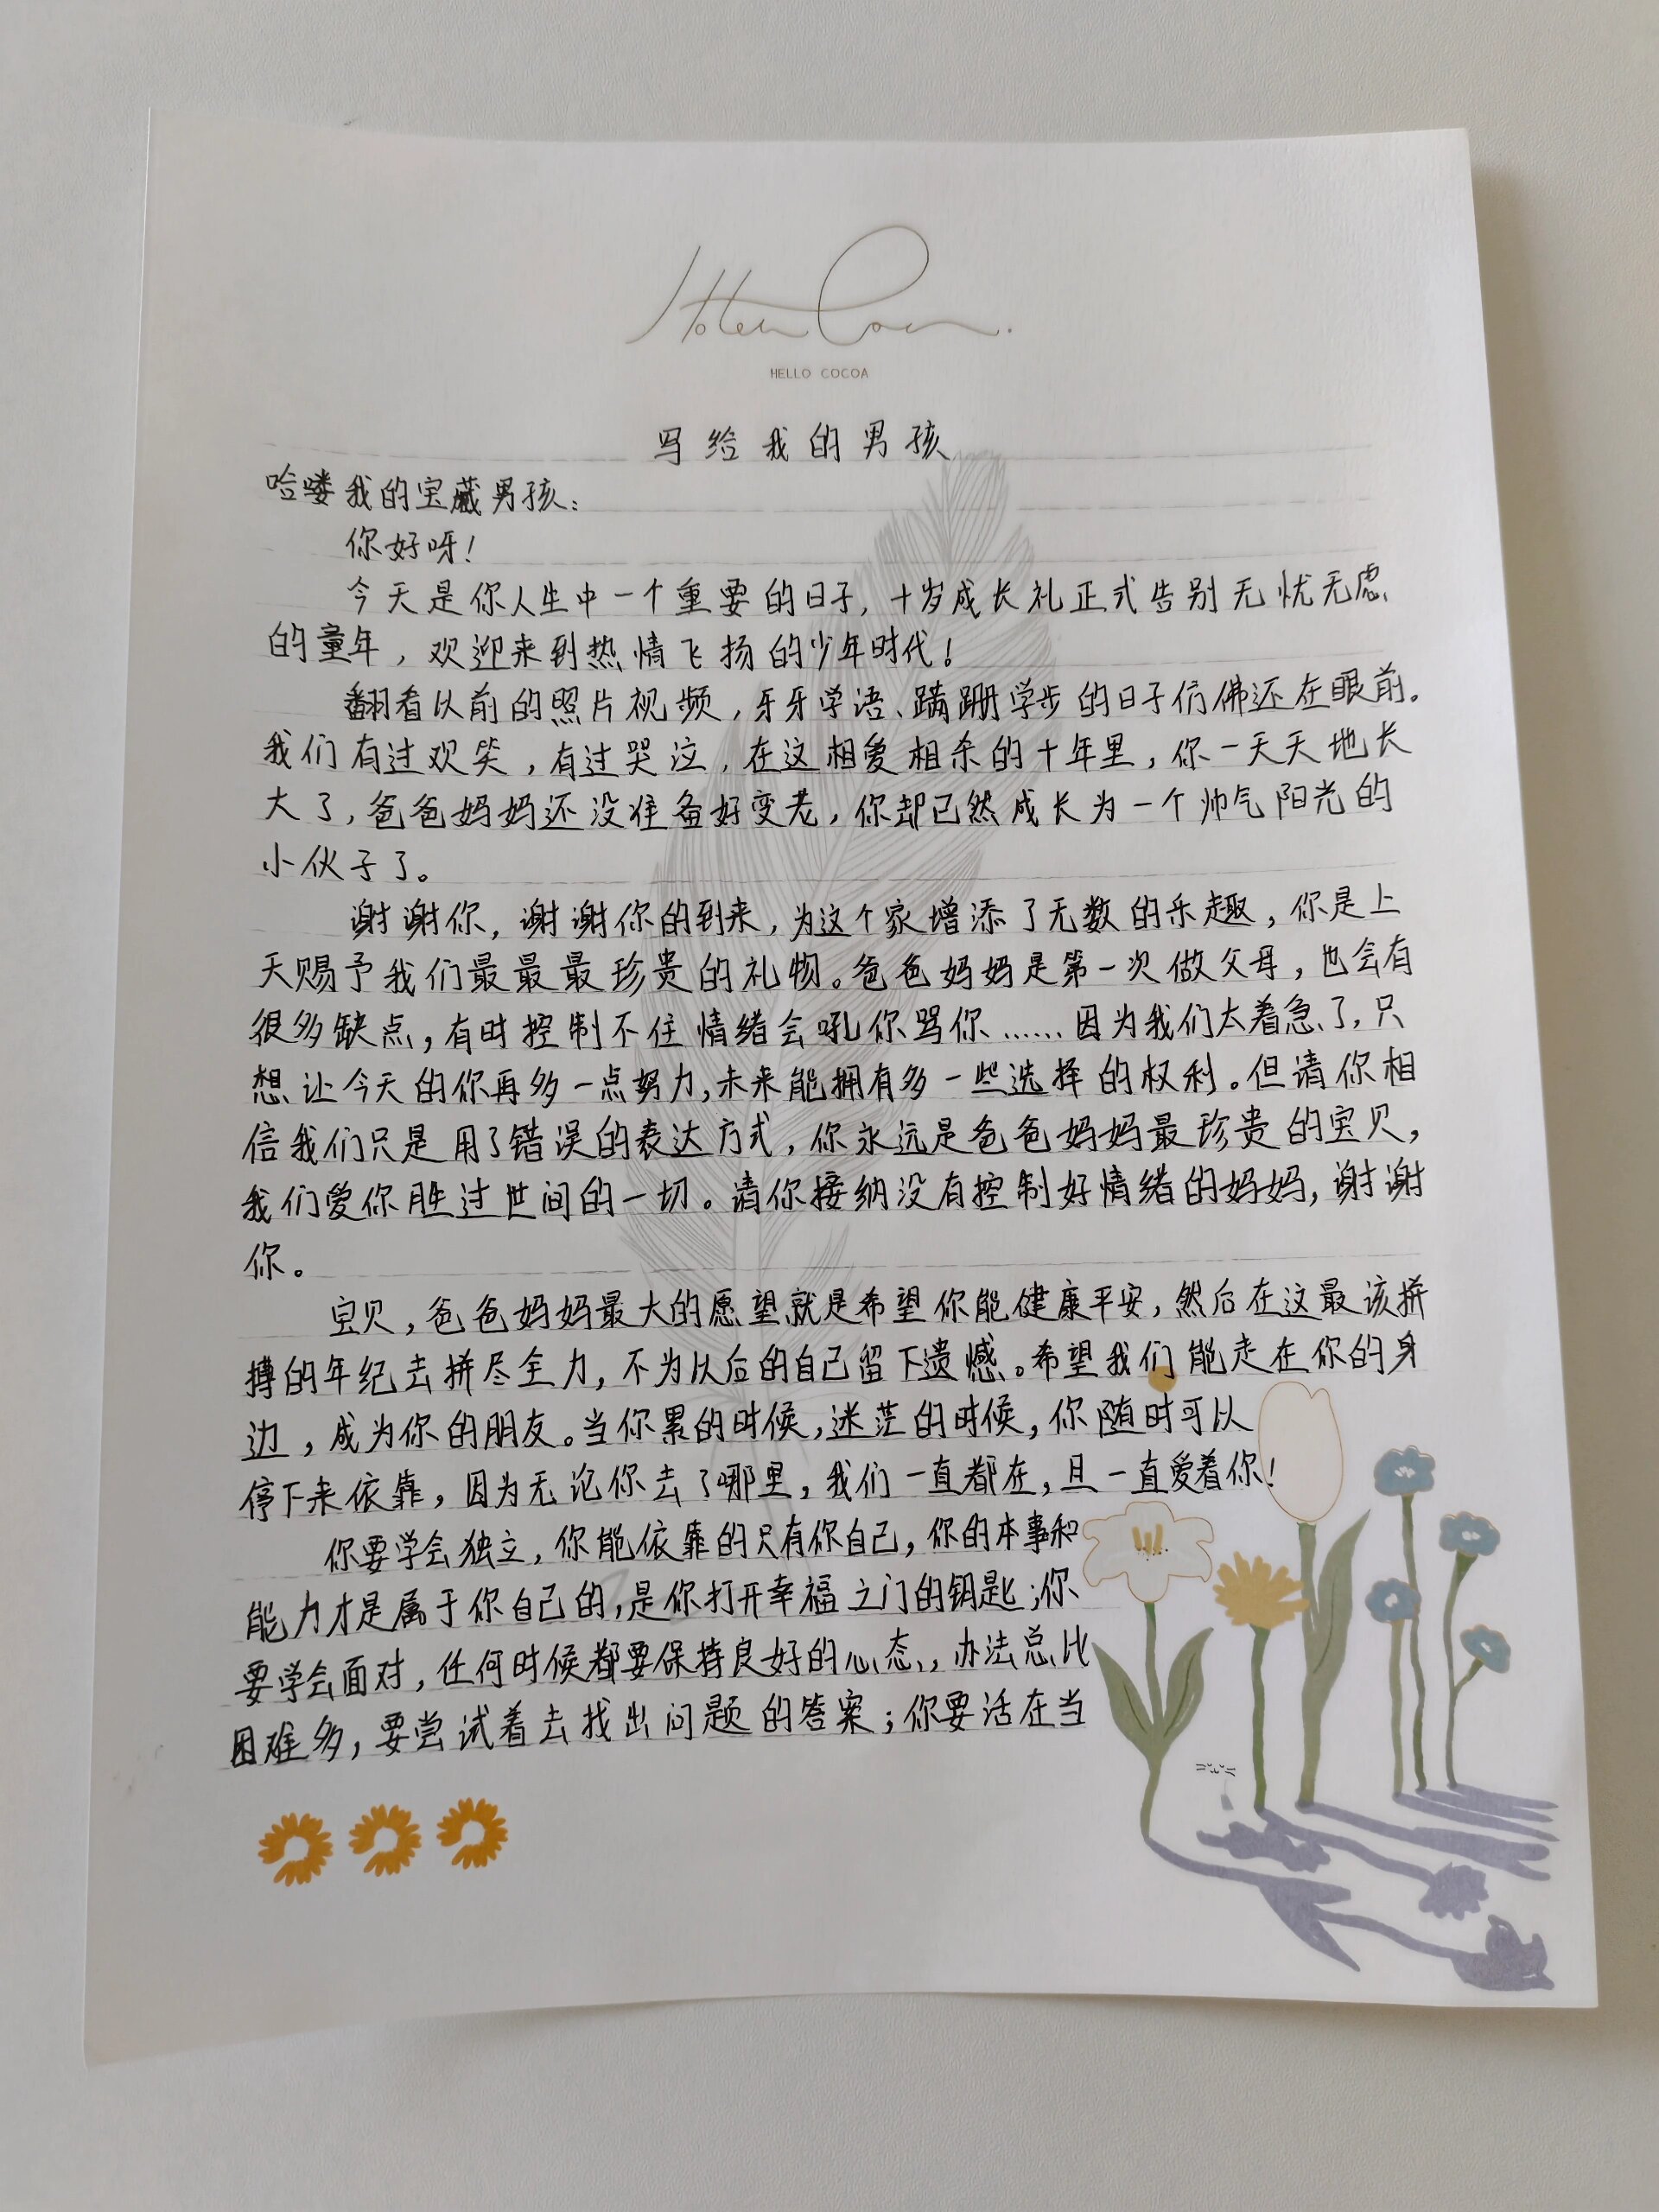 HELLO COCOA
写给我的男孩
哈喽我的宝藏男孩：
你好呀！
今天是你人生中一个重要的日子，十岁成长礼正式告别无忧无虑
的童年，欢迎来到热情飞扬的少年时代！
翻看以前的照片视频，牙牙学语、蹒跚学步的日子仿佛还在眼前。
我们有过欢笑，有过哭泣，在这相爱相杀的十年里，你一天天地长
大了，爸爸妈妈还没准备好变老，你却已然成长为一个帅气阳光的
小伙子了。
谢谢你，谢谢你的到来，为这个家增添了无数的乐趣，你是上
天赐予我们最最最珍贵的礼物。爸爸妈妈是第一次做父母，也会有
很多缺点，有时控制不住情绪会吼你骂你……因为我们太着急了，只
想让今天的你再多一点努力，未来能拥有多一些选择的权利。但请你相
信我们只是用了错误的表达方式，你永远是爸爸妈妈最珍贵的宝贝，
我们爱你胜过世间的一切。请你接纳没有控制好情绪的妈妈，谢谢
你。
宝贝，爸爸妈妈最大的愿望就是希望你能健康平安，然后在这最该拼
搏的年纪去拼尽全力，不为以后的自己留下遗憾。希望我们能走在你的身
边，成为你的朋友。当你累的时候，迷茫的时候，你随时可以
停下来依靠，因为无论你去了哪里，我们一直都在，且一直爱着你！
你要学会独立，你能依靠的只有你自己，你的本事和
能力才是属于你自己的，是你打开幸福之门的钥匙；你
要学会面对，任何时候都要保持良好的心态，办法总比
困难多，要尝试着去找出问题的答案；你要活在当